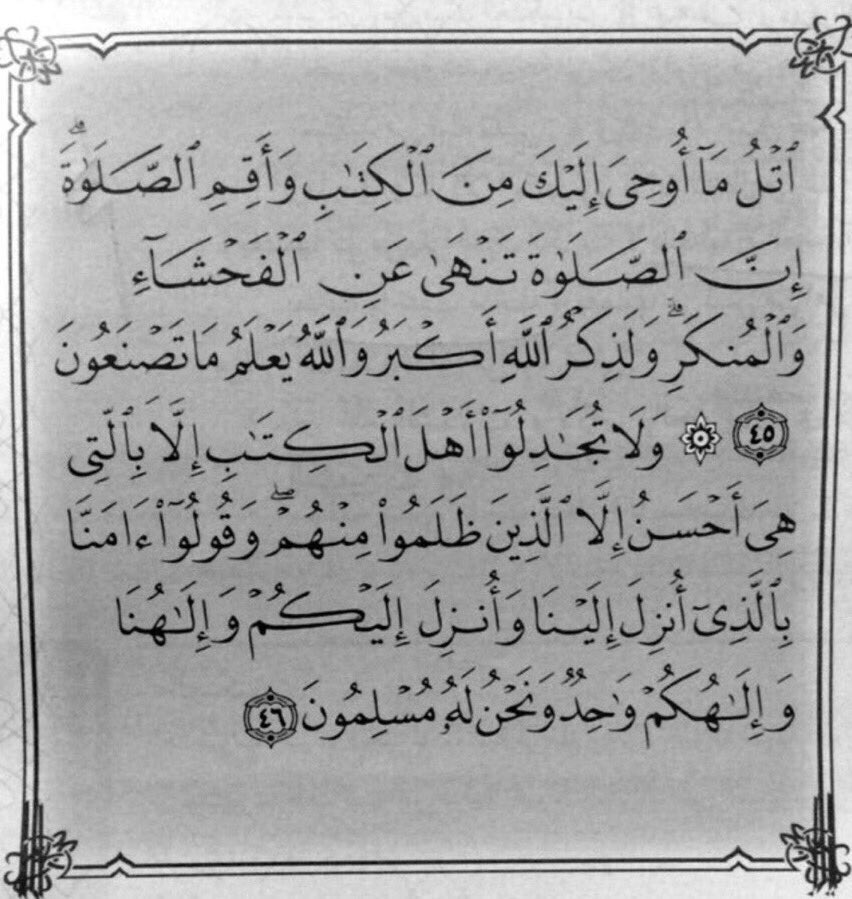 ٱتْلُ مَآ أُوحِىَ إِلَيْكَ مِنَ ٱلْكِتَـٰبِ وَأَقِمِ ٱلصَّلَوٰةَۖ
إِنَّ ٱلصَّلَوٰةَ تَنْهَىٰ عَنِ ٱلْفَحْشَآءِ
وَٱلْمُنكَرِۗ وَلَذِكْرُ ٱللَّهِ أَكْبَرُ وَٱللَّهُ يَعْلَمُ مَا تَصْنَعُونَ
﴿٤٥﴾ ۞ وَلَا تُجَـٰدِلُوٓا۟ أَهْلَ ٱلْكِتَـٰبِ إِلَّا بِٱلَّتِى
هِىَ أَحْسَنُ إِلَّا ٱلَّذِينَ ظَلَمُوا۟ مِنْهُمْۖ وَقُولُوٓا۟ ءَامَنَّا
بِٱلَّذِىٓ أُنزِلَ إِلَيْنَا وَأُنزِلَ إِلَيْكُمْ وَإِلَـٰهُنَا
وَإِلَـٰهُكُمْ وَٰحِدٌ وَنَحْنُ لَهُۥ مُسْلِمُونَ ﴿٤٦﴾